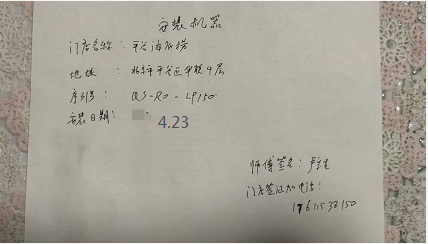 安装机器
门店名称：平谷海底捞
地址：北京市平谷区华联4层
序列号：QS-RO-LP150
安装日期：4.23
师傅签名：卢
门店签证加电话：
17611538150